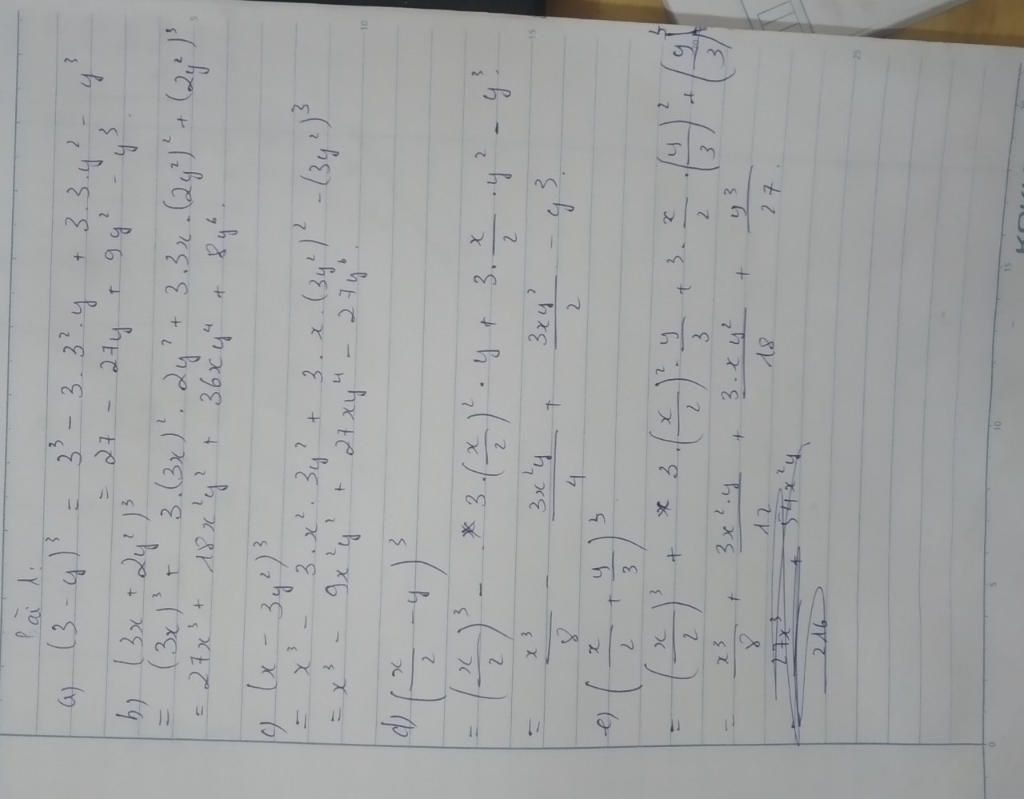 Bài 1:
a) (3 - y)³ = 3³ - 3.3².y + 3.3.y² - y³
= 27 - 27y + 9y² - y³
b) (3x + 2y²)³
= (3x)³ + 3.(3x)².2y² + 3.3x.(2y²)² + (2y²)³
= 27x³ + 18x²y² + 36xy⁴ + 8y⁶.
c) (x - 3y²)³
= x³ - 3.x².3y² + 3.x.(3y²)² - (3y²)³
= x³ - 9x²y² + 27xy⁴ - 27y⁶.
d) (x/2 - y)³
= (x/2)³ - 3.(x/2)².y + 3.x/2.y² - y³.
= x³/8 - 3x²y/4 + 3xy²/2 - y³.
e) (x/2 + y/3)³
= (x/2)³ + 3.(x/2)².y/3 + 3.x/2.(y/3)² + (y/3)³
= x³/8 + 3x².y/12 + 3.xy²/18 + y³/27
= 27x³ + 54x²y
216